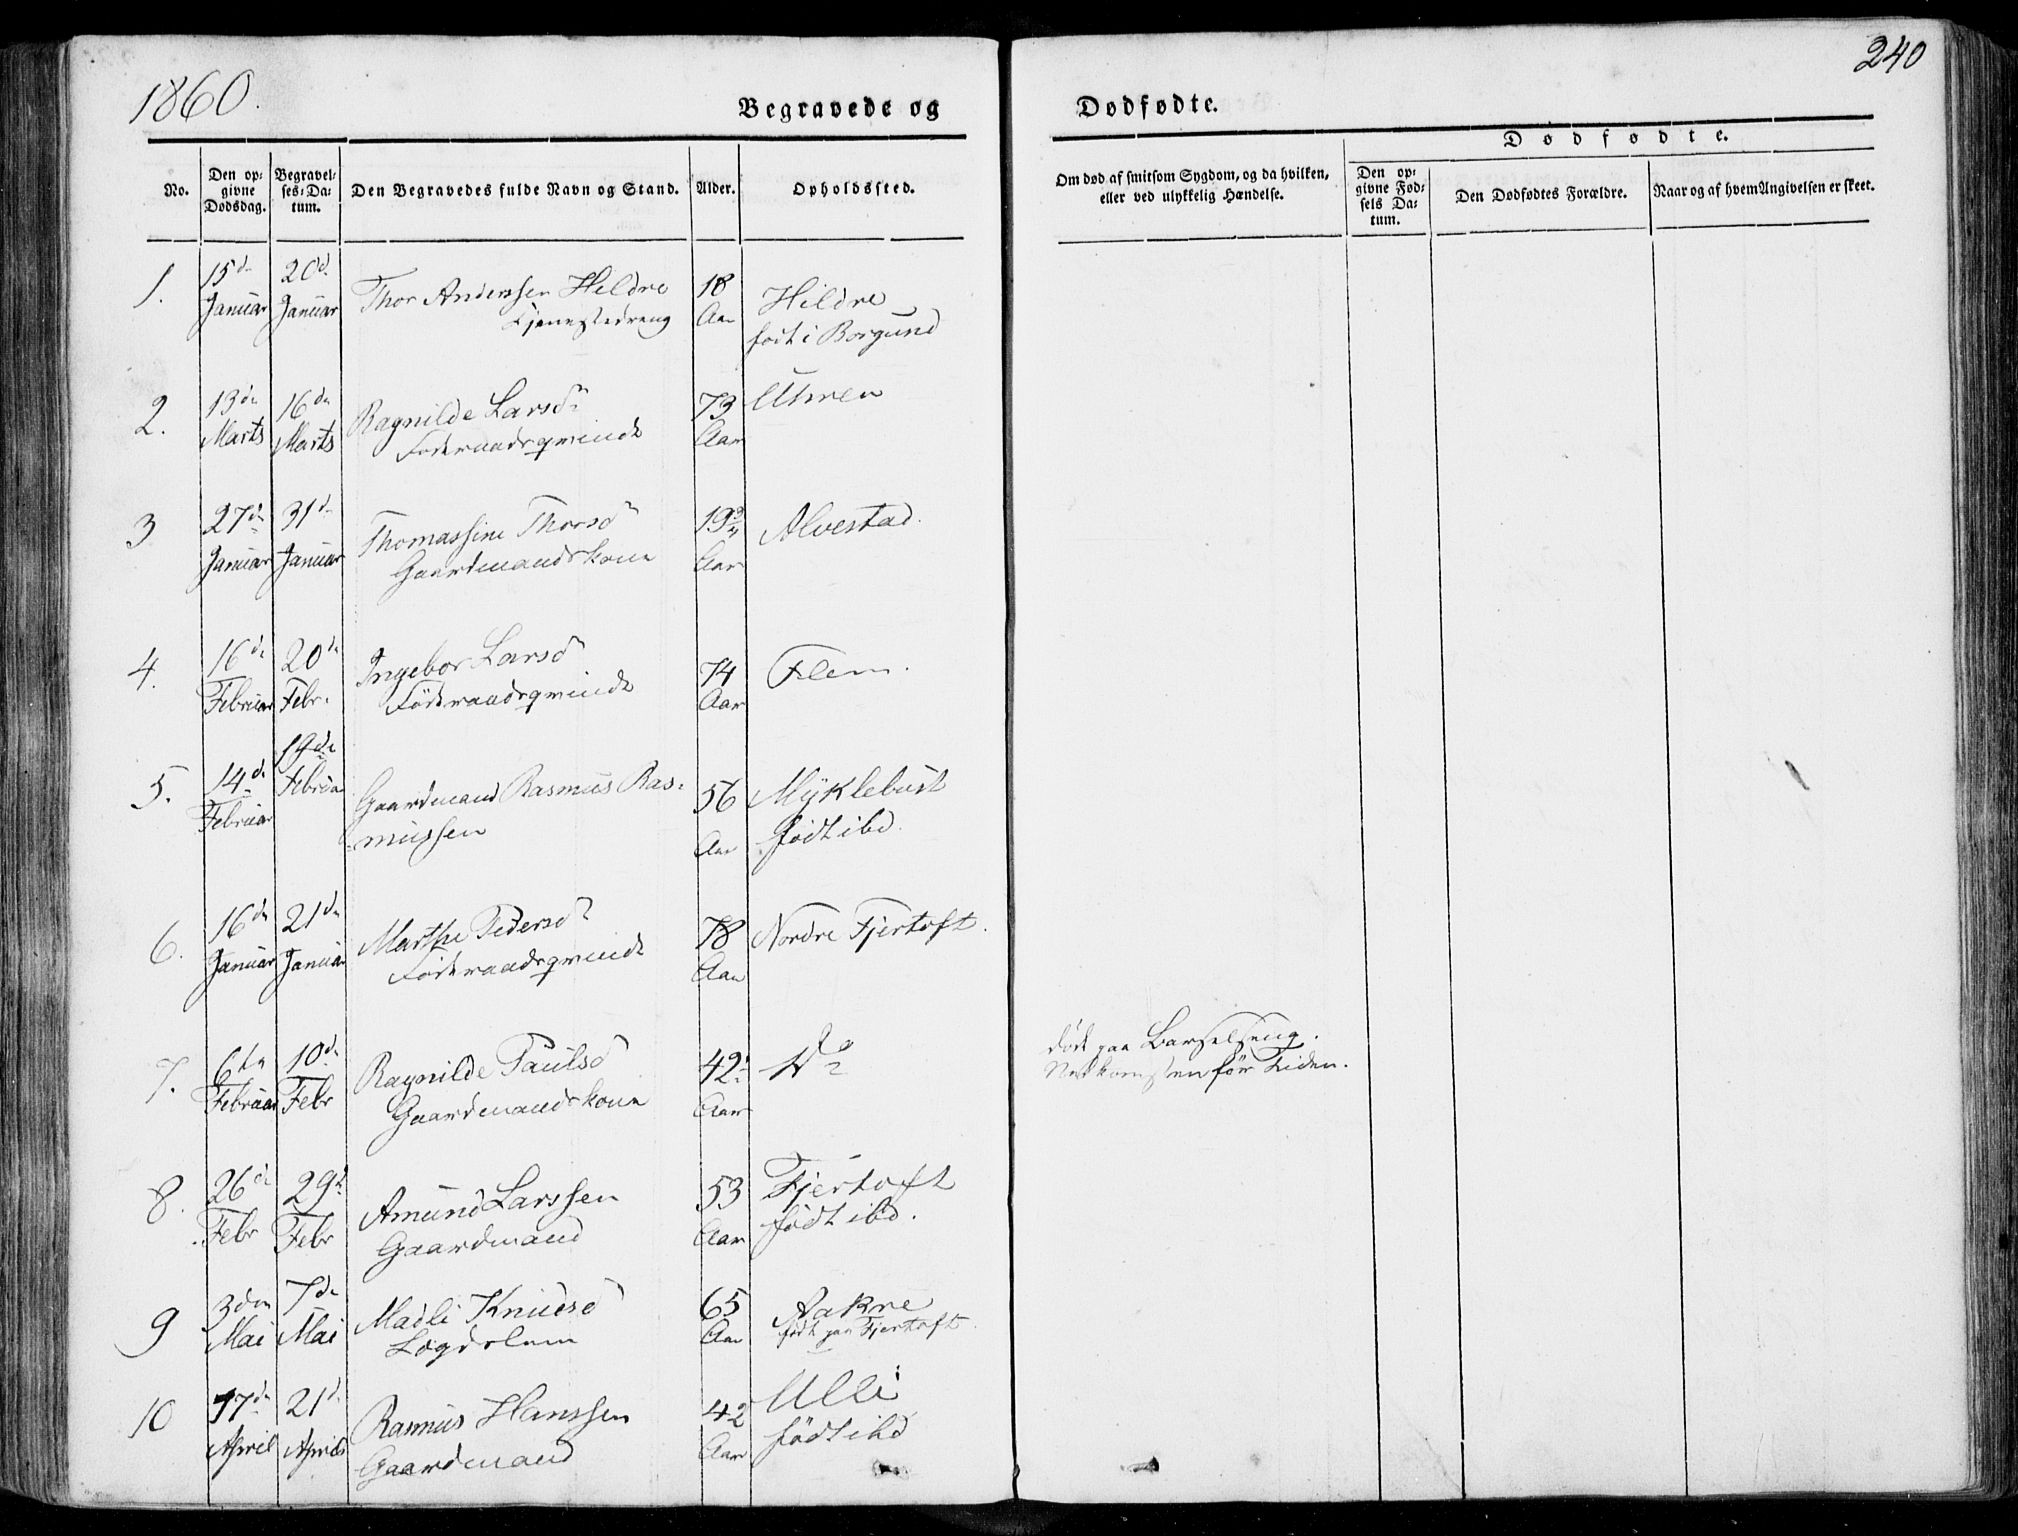 1860.
240
Begravede og
Dødfødte.
No.
Den op-
givne
Dødsdag.
Begravel-
ses-Da-
tum.
Den Begravedes fulde Navn og Stand.
Alder.
Opholdssted.
Om død af smitsom Sygdom, og da hvilken,
eller ved ulykkelig Hændelse.
Dødfødte.
Den op-
givne Fød-
sels Da-
tum.
Den Dødfødtes Forældre.
Naar og af hvem Angivelsen er skeet.
1.
15de
Januar
20de
Januar
Thor Anderssen Hildre
Tjenestedreng
18
Aar
Hildre
født i Borgund
2.
13de
Marts
16de
Marts
Ragnilde Larsd
Føderaadsqvinde
73
Aar
Uhren
3
27de
Januar
31de
Januar
Thomassine Thorsd
Gaardmandskone
19
Aar
Alvestad.
4.
16de
Februar
20de
Febr.
Ingebor Larsd
Føderaadsqvinde
74
Aar
Flem.
5.
14de
Februar
19de
Februar
Gaardmand Rasmus Ras-
mussen
56
Aar
Myklebust
født ibd.
6.
16de
Januar
21de
Januar
Marthe Pedersd
Føderaadsqvinde
78
Aar
Nordre Fjertoft.
7.
6te
Februar
10de
Febr
Ragnilde Paulsd
Gaardmandskone
42
Aar
Do
død paa Barselseng.
Nedkomsten før Tiden.
8.
26de
Febr
29de
Febr
Amund Larssen
Gaardmand
53
Aar
Fjertoft
født ibd.
9
3die
Mai
7de
Mai
Madli Knudsd
Lægdslem
65
Aar
Aakre
født paa Fjertoft.
10
17de
April
21de
April
Rasmus Hanssen
Gaardmand
42
Aar
Ulli
født ibd